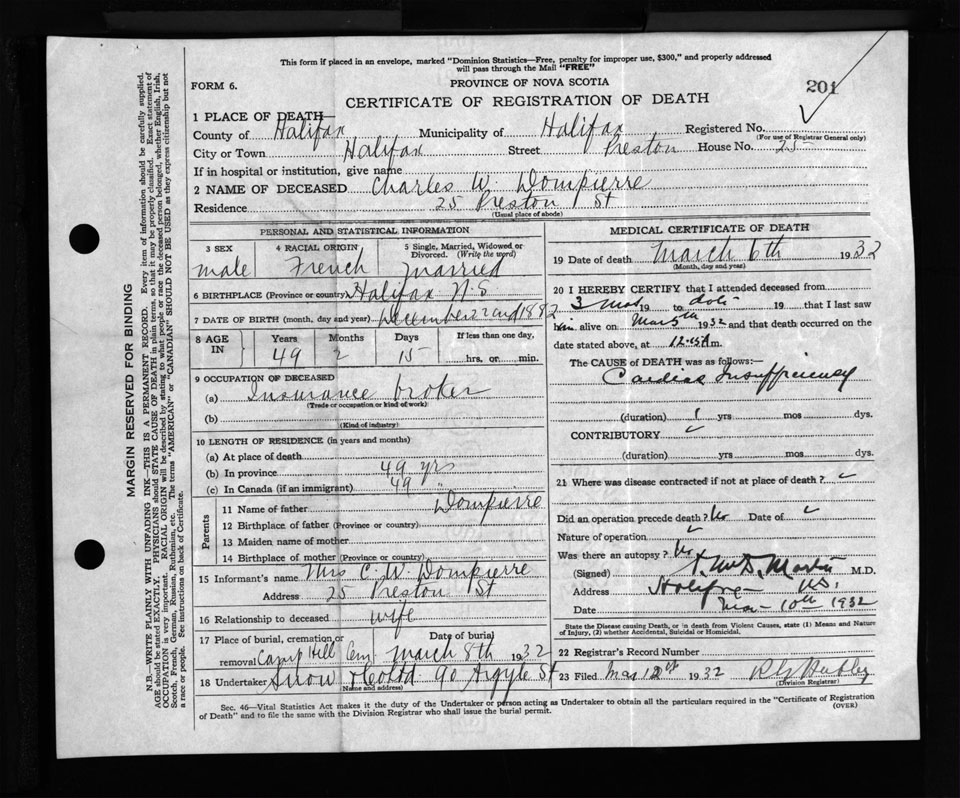 This form if placed in an envelope, marked "Dominion Statistics—Free, penalty for improper use, $300," and properly addressed
will pass through the Mail "FREE"
FORM 6.
PROVINCE OF NOVA SCOTIA
201
CERTIFICATE OF REGISTRATION OF DEATH
1 PLACE OF DEATH—
County of Halifax Municipality of Halifax Registered No.
(For use of Registrar General only)
City or Town Halifax Street Preston House No. 25
If in hospital or institution, give name
2 NAME OF DECEASED Charles W. Dompierre
Residence 25 Preston St
(Usual place of abode)
PERSONAL AND STATISTICAL INFORMATION
3 SEX 4 RACIAL ORIGIN 5 Single, Married, Widowed or Divorced. (Write the word)
male French married
6 BIRTHPLACE (Province or country) Halifax N.S
7 DATE OF BIRTH (month, day and year) December 22nd 1882
8 AGE IN Years Months Days If less than one day,
49 2 15 hrs. or min.
9 OCCUPATION OF DECEASED
(a) Insurance broker
(Trade or occupation or kind of work)
(b)
(Kind of industry)
10 LENGTH OF RESIDENCE (in years and months)
(a) At place of death
(b) In province 49 yrs
(c) In Canada (if an immigrant) 49 "
Parents
11 Name of father Dompierre
12 Birthplace of father (Province or country)
13 Maiden name of mother
14 Birthplace of mother (Province or country)
15 Informant's name Mrs C. W. Dompierre
Address 25 Preston St
16 Relationship to deceased wife
17 Place of burial, cremation or removal Camp Hill Cem Date of burial March 8th 1932
18 Undertaker Snow & Co Ltd 90 Argyle St
(Name and address)
MEDICAL CERTIFICATE OF DEATH
19 Date of death March 6th 1932
(Month, day and year)
20 I HEREBY CERTIFY that I attended deceased from
3 Mos 19 to date 19 that I last saw
him alive on Mar 5th 1932 and that death occurred on the
date stated above, at 12.45 A m.
The CAUSE of DEATH was as follows:—
Cardiac Insufficiency
(duration) 1 yrs mos dys.
CONTRIBUTORY
(duration) yrs mos dys.
21 Where was disease contracted if not at place of death?
Did an operation precede death? No Date of
Nature of operation
Was there an autopsy? No
(Signed) Martin M.D.
Address Halifax N.S.
Date Mar 10th 1932
State the Disease causing Death, or in death from Violent Causes, state (1) Means and Nature
of Injury, (2) whether Accidental, Suicidal or Homicidal.
22 Registrar's Record Number
23 Filed Mar 12th 1932
(Division Registrar)
Sec. 46—Vital Statistics Act makes it the duty of the Undertaker or person acting as Undertaker to obtain all the particulars required in the "Certificate of Registration
of Death" and to file the same with the Division Registrar who shall issue the burial permit.
(OVER)
MARGIN RESERVED FOR BINDING
N.B.—WRITE PLAINLY WITH UNFADING INK—THIS IS A PERMANENT RECORD. Every item of information should be carefully supplied.
AGE should be stated EXACTLY. PHYSICIANS should STATE CAUSE OF DEATH in plain terms, so that it may be properly classified. Exact statement of
OCCUPATION is very important. RACIAL ORIGIN will be described by stating to what people or race the deceased person belonged, whether English, Irish,
Scotch, French, German, Russian, Ruthenian, etc. The terms "AMERICAN" or "CANADIAN" SHOULD NOT BE USED as they express citizenship but not
a race or people. See instructions on back of Certificate.